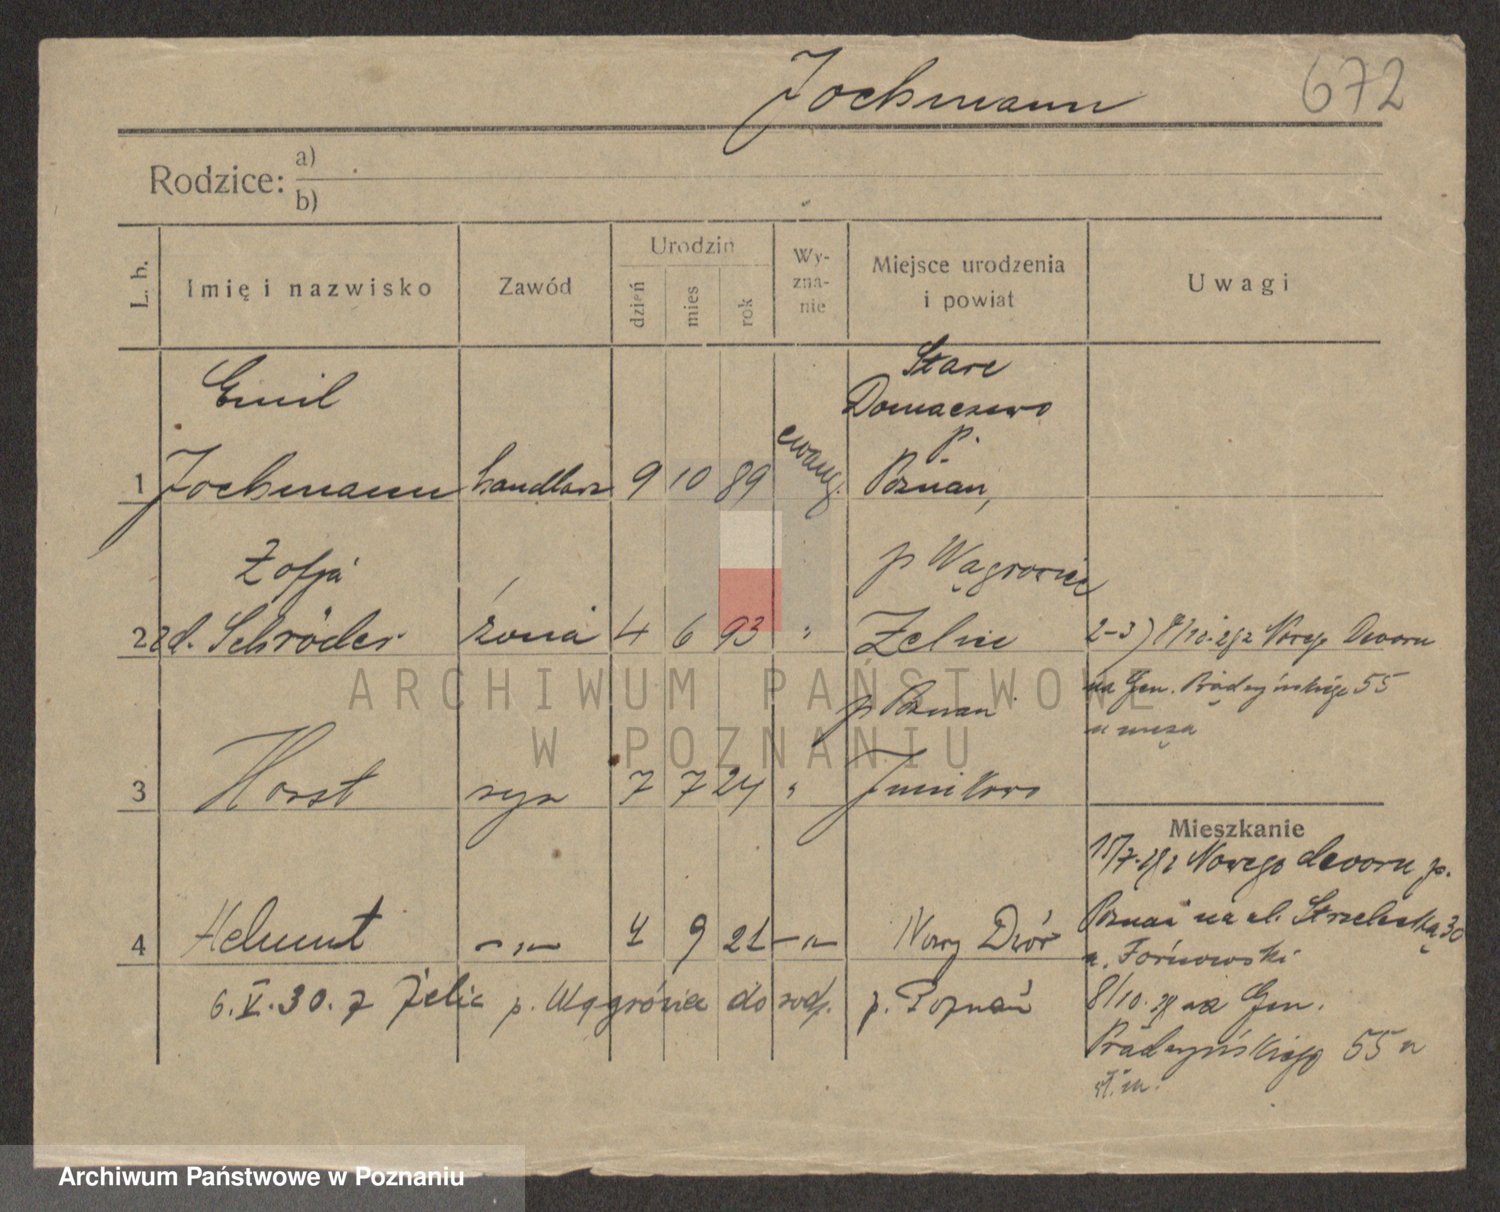 Jochmann
672
Rodzice:
a)
b)
L. b.
Imię i nazwisko
Zawód
Urodzin
dzień
mies
rok
Wy-
zna-
nie
Miejsce urodzenia
i powiat
Uwagi
Emil
Stare
Domaczewo
p.
1 Jochmann handlarz 9 10 89 ewang. Poznan,
Zofja
p Wągrowiec
2 d. Schröder żona 4 6 93 " Zelice
2-3) Nowego Dworu
na Gen. Prądzyńskiego 55
u męza
p Poznań
3 Horst syn 7 7 24 " Junikowo
Mieszkanie
15/7. Nowego dworu p.
Poznań na ul. Strzelecką 30
4 Helmut -„- 4 9 21 -„- Nowy Dwór
6.V.30. z Zelic p. Wągrówiec do rodz. p. Poznań
8/10. na Gen.
Prądzyńskiego 55
ARCHIWUM PAŃSTWOWE
W POZNANIU
Archiwum Państwowe w Poznaniu